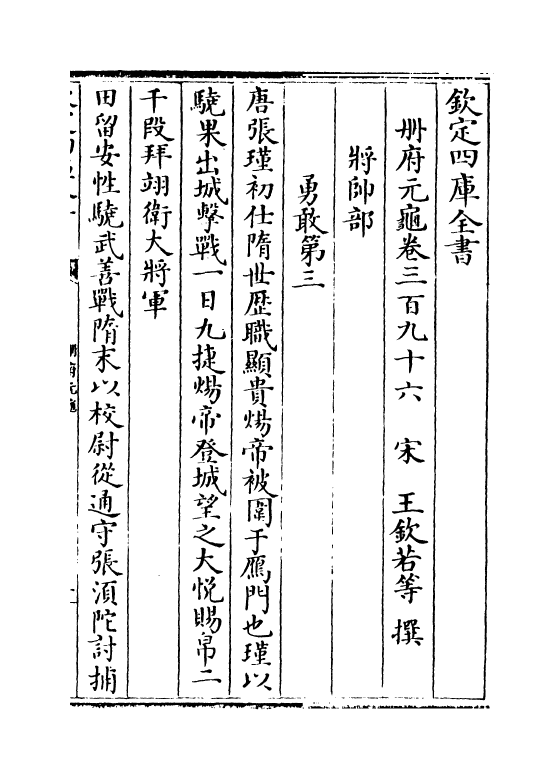 欽定四庫全書
冊府元龜卷三百九十六　宋　王欽若等　撰
將帥部
勇敢第三
唐張瑾初仕隋世歴職顯貴煬帝被圍于鴈門也瑾以
驍果出城擊戰一日九捷煬帝登城望之大悦賜帛二
千段拜翊衛大將軍
田留安性驍武善戰隋末以校尉從通守張湏陀討捕